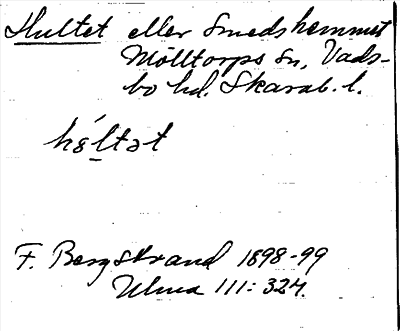 Hultet eller Smedshemmet
Mölltorps sn, Vads-
bo hd. Skarab. l.
hɞ́ltət
F. Bergstrand 1898-99
Ulma 111:324.